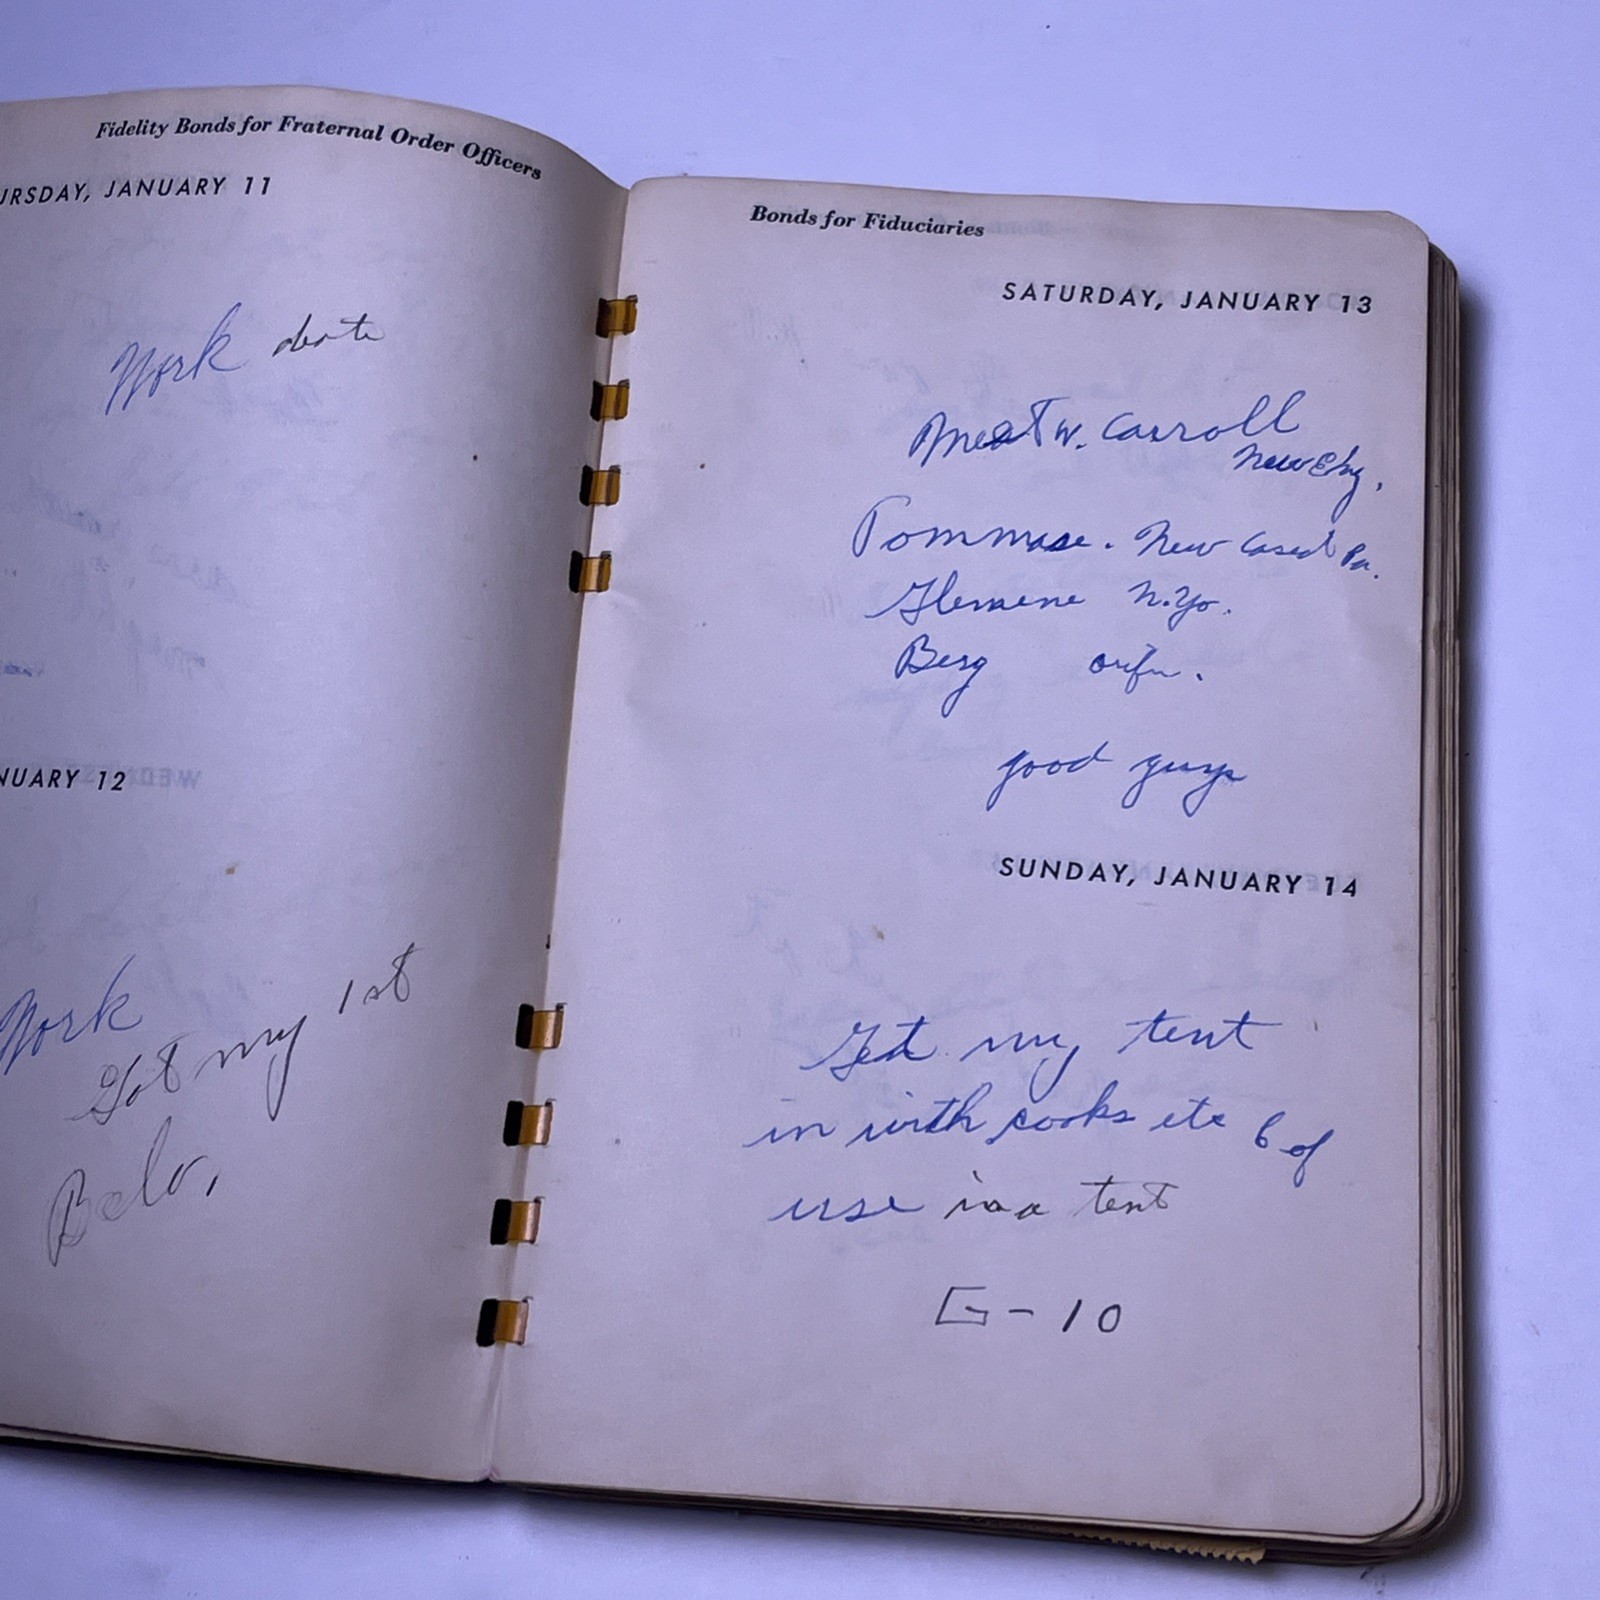 Fidelity Bonds for Fraternal Order Officers
URSDAY, JANUARY 11
Work
NUARY 12
Work
Got my 1st
Bonds for Fiduciaries
SATURDAY, JANUARY 13
W. Carroll
New Eng.
New Pa.
N.Yo.
Berg
good guys
SUNDAY, JANUARY 14
Get my tent
in with cooks etc 6 of
use in a tent
G-10